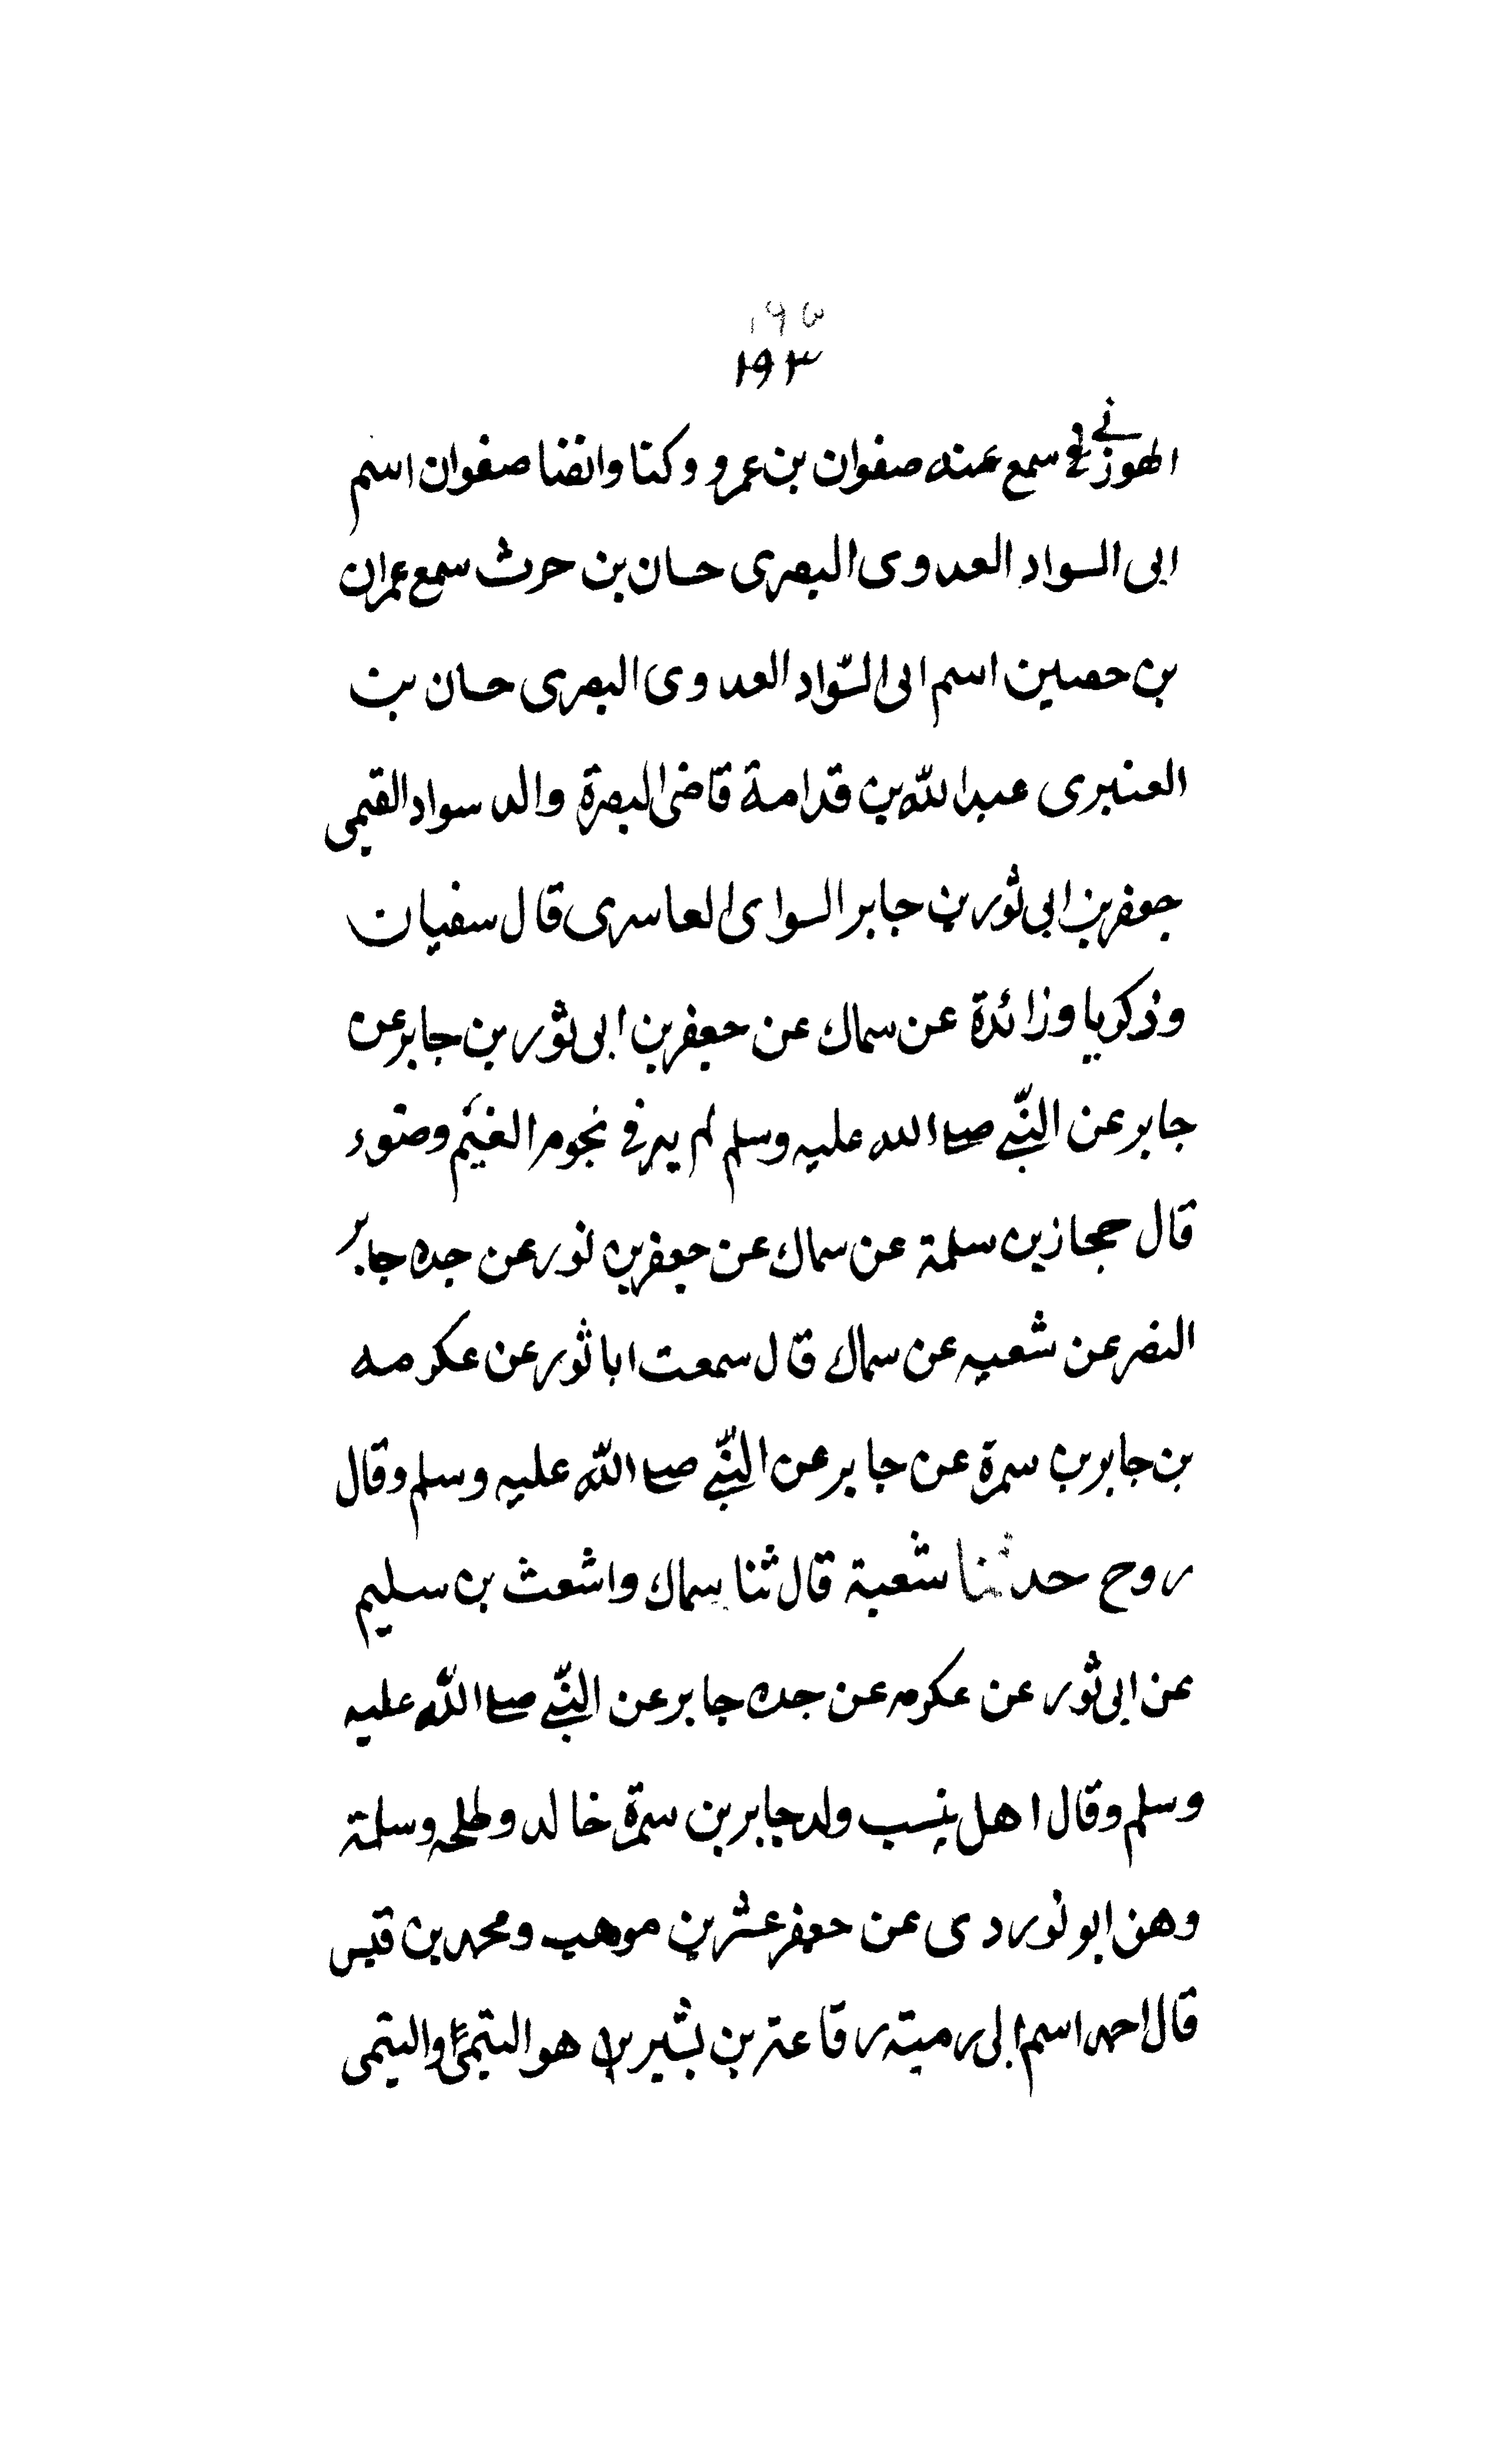 ١٩٥
١٩٣
الهوزني سمع عنه صفوان بن عمرو وكنا وانفنا صفوان اسم
ابى السواد العدوى البصرى حسان بن حرث سمع عمران
بن حصين اسم ابى السّواد العدوى البصرى حسان بن
العنبرى عبد الله بن قدامة قاضى البصرة والد سواد القيمى
جعفر بن ابى ثور بن جابر السواى العاسرى قال سفيان
وذكريا وزائدة عن سماك عن جعفر بن ابى ثور بن جابر عن
جابر عن النّبي صلى الله عليه وسلم لم ير في نجوم الغنم وضوء
قال حجاز بن سلمة عن سماك عن جعفر بن نور عن جده جابر
النضر عن شعبه عن سماك قال سمعت ابا ثور عن عكرمه
بن جابر بن سمرة عن جابر عن النّبي صلى الله عليه وسلم وقال
روح حدثنا شعبة قال ثنا سماك واشعث بن سليم
عن ابى ثور عن عكرمه عن جده جابر عن النّبي صلى الله عليه
وسلم وقال اهل ينسب ولد جابر بن سمرة خالد وطلحه وسلمة
وهن ابو نور دى عن جعفر عشر بن موهب ومحمد بن قيس
قال احمد اسم ابى رميته رقاعة بن بشير بن هو التيمى والتيمى